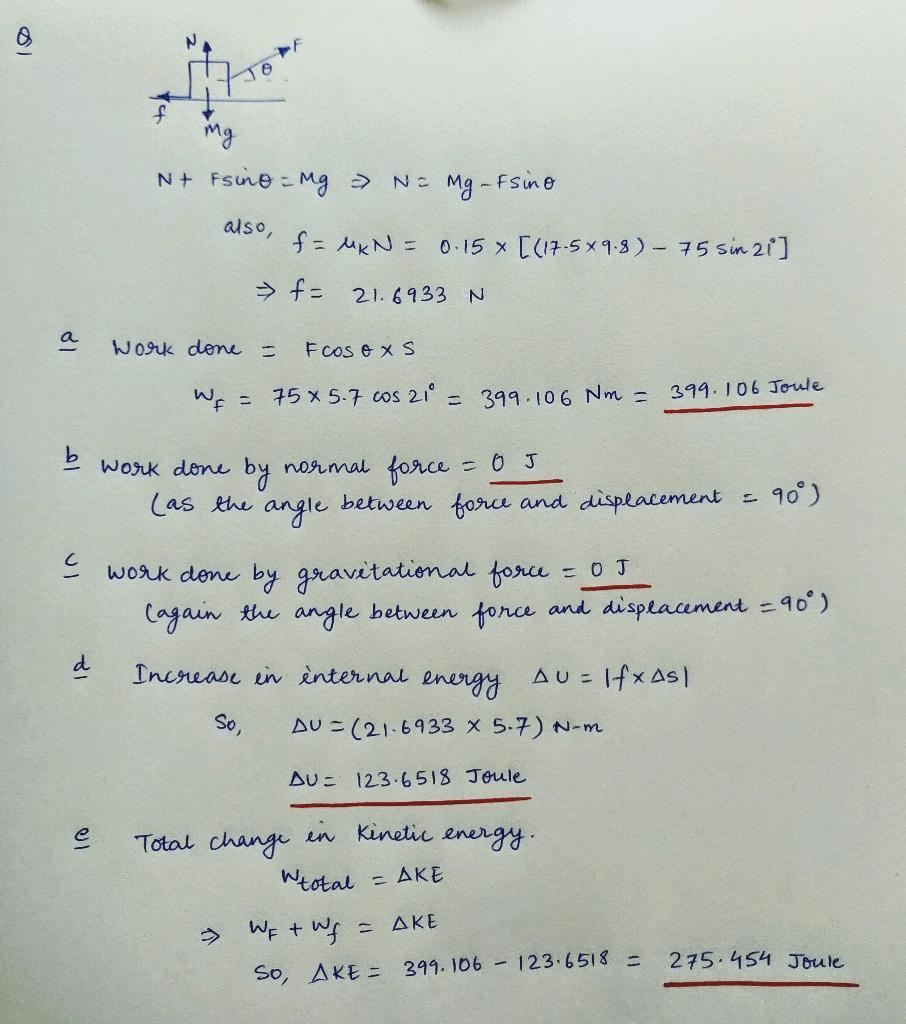 Q
N F
θ
f
Mg
N + Fsinθ = Mg ⇒ N = Mg - Fsinθ
also, f = μKN = 0.15 x [(17.5 x 9.8) - 75 sin 21°]
⇒ f = 21.6933 N
a Work done = F cos θ x S
WF = 75 x 5.7 cos 21° = 399.106 Nm = 399.106 Joule
b Work done by normal force = 0 J
(as the angle between force and displacement = 90°)
c Work done by gravitational force = 0 J
(again the angle between force and displacement = 90°)
d Increase in internal energy ΔU = |f x Δs|
So, ΔU = (21.6933 x 5.7) N-m
ΔU = 123.6518 Joule
e Total change in Kinetic energy.
Wtotal = ΔKE
⇒ WF + Wf = ΔKE
So, ΔKE = 399.106 - 123.6518 = 275.454 Joule